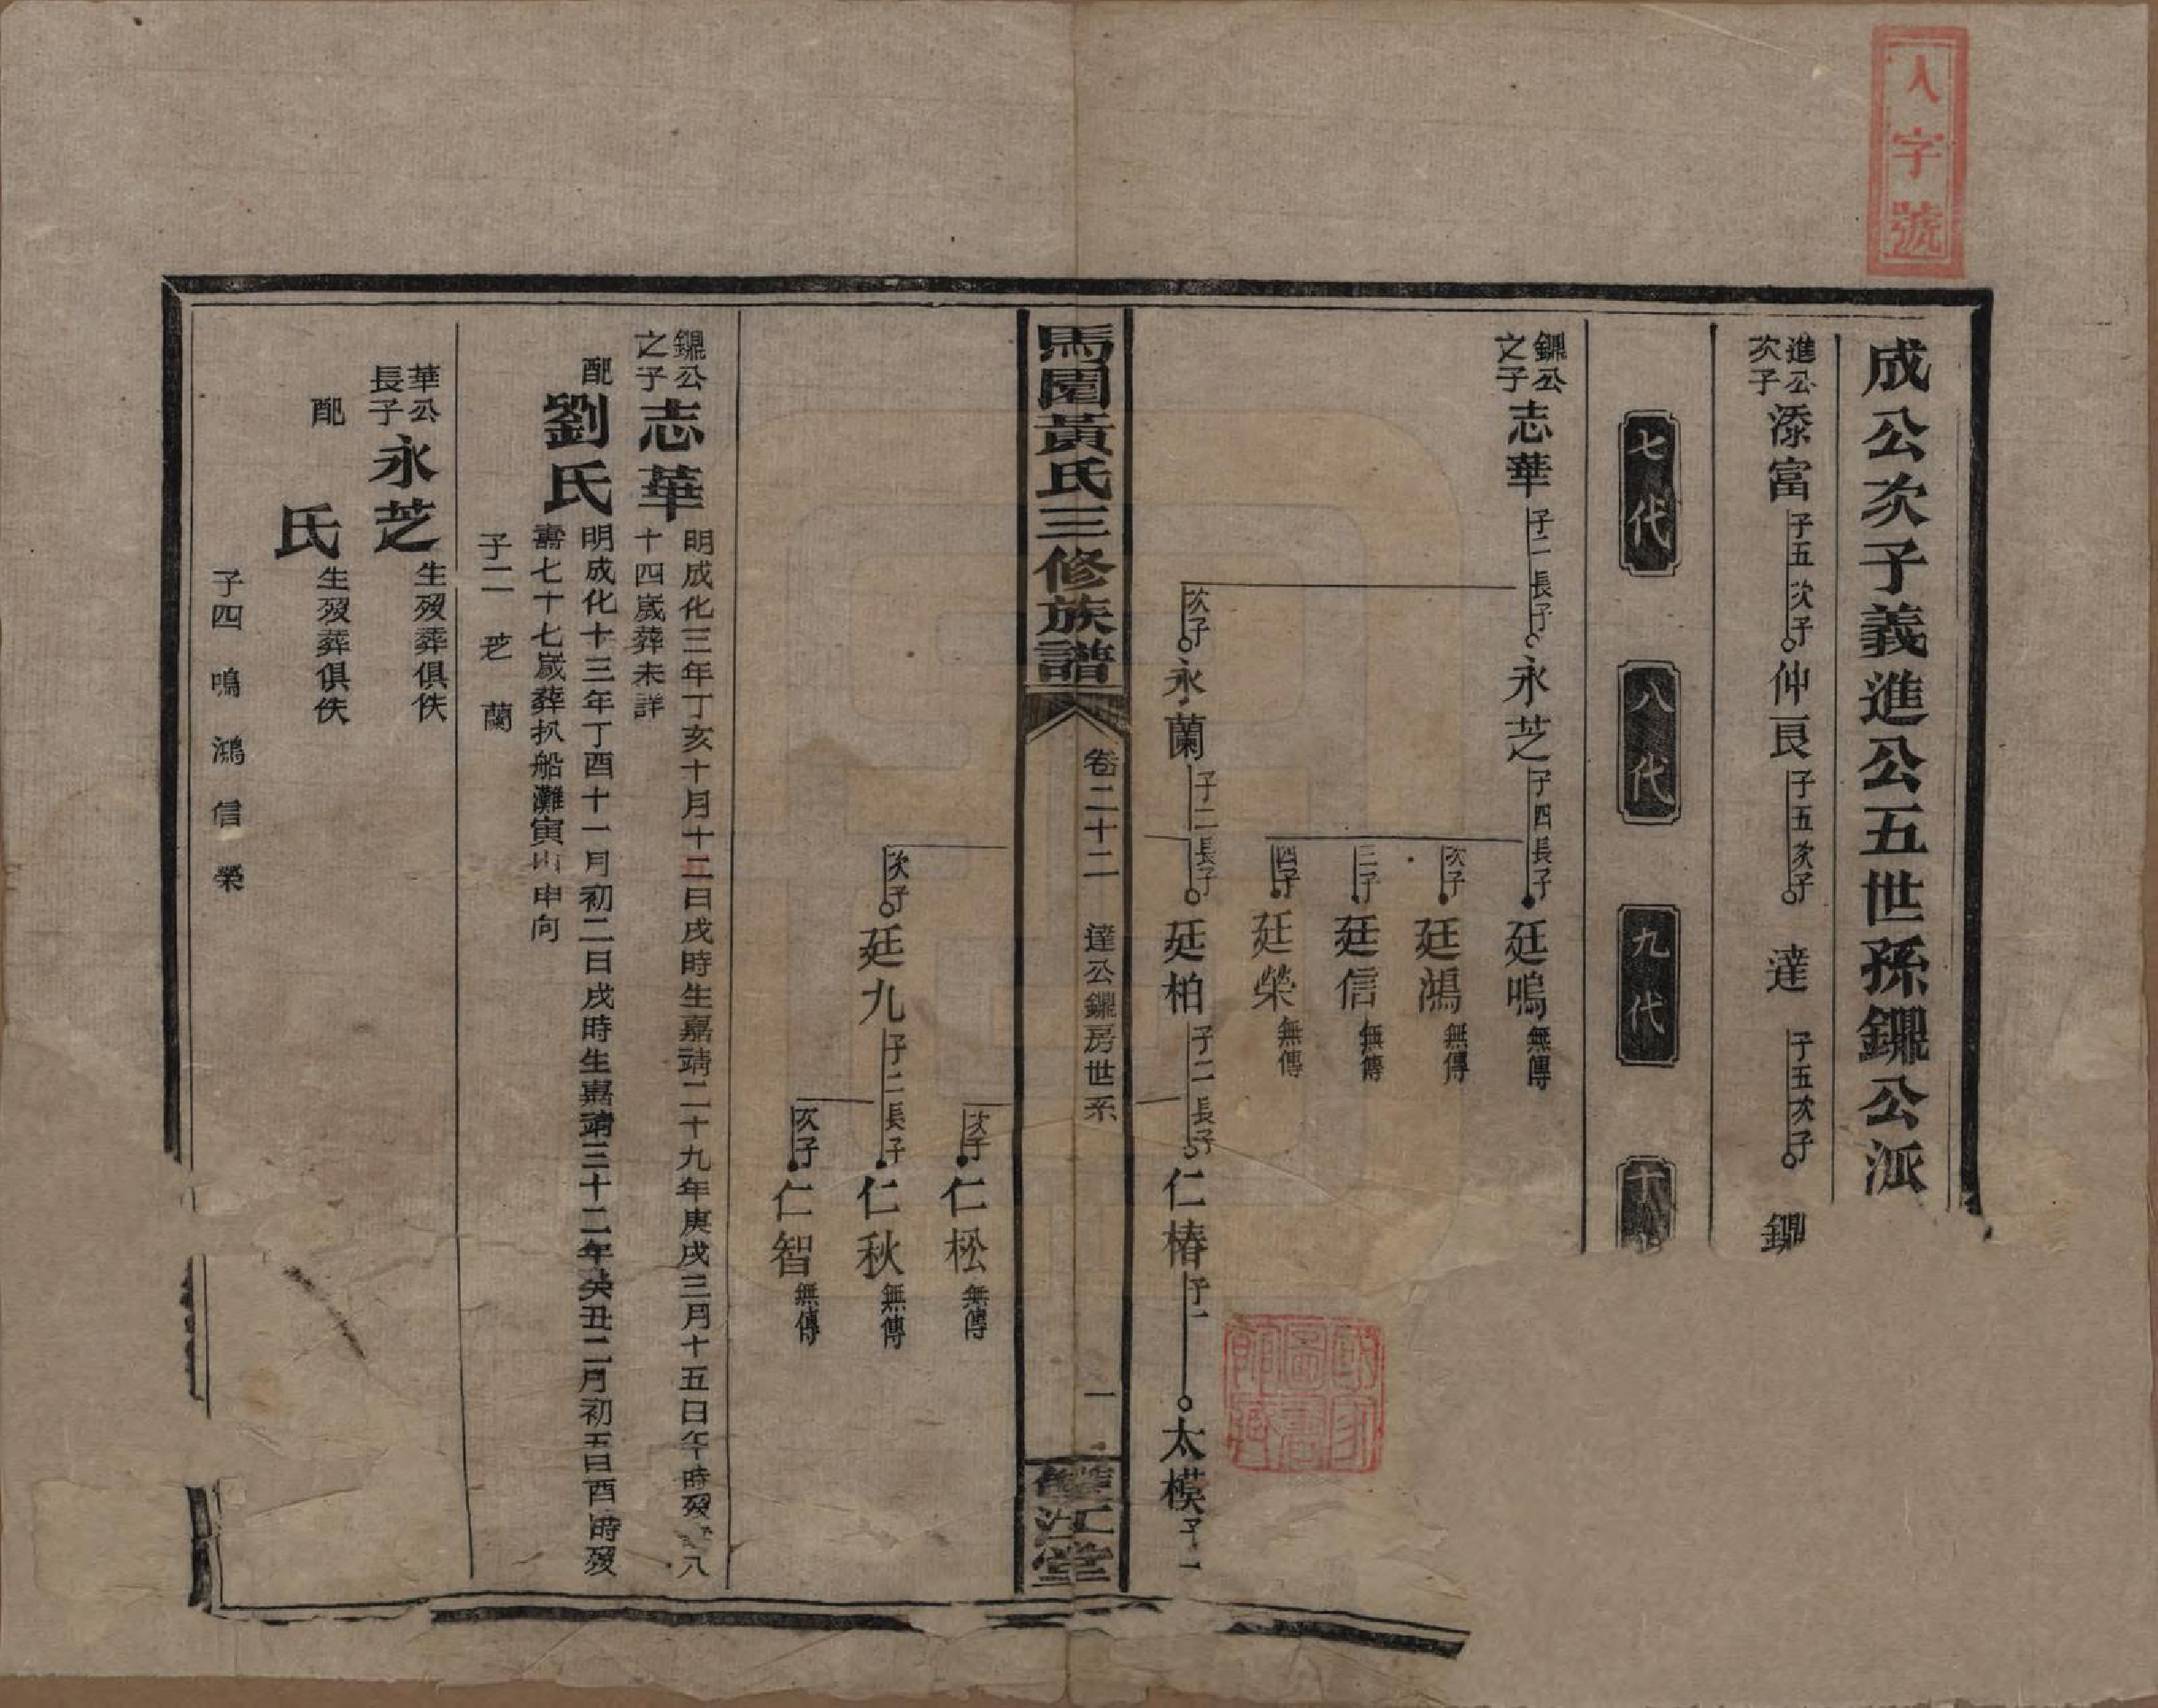 人字號
成公次子義進公五世孫鑼公派
進公次子 添富 子五 次子 仲良 子五 次子 達 子五 次子
七代 八代 九代
之子 志華 子二 長子 永芝 子四 長子 廷鳴 無傳
次子 廷鴻 無傳
三子 廷信 無傳
四子 廷榮 無傳
次子 永蘭 子二 長子 廷柏 子二 長子 仁椿 子一 太模 子一
馬園黃氏三修族譜 卷二十二 達公 房世系 一 雙江堂
次子 仁松 無傳
次子 廷九 子二 長子 仁秋 無傳
次子 仁智 無傳
之子 志華 明成化三年丁亥十月十二日戌時生嘉靖二十九年庚戌三月十五日午時歿 八
十四歲葬未詳
配劉氏 明成化十三年丁酉十一月初二日戌時生嘉靖三十二年癸丑二月初五日酉時歿
壽七十七歲葬扒船灘寅山申向
子二 芝 蘭
華公長子 永芝 生歿葬俱佚
配 氏 生歿葬俱佚
子四 鳴 鴻 信 榮